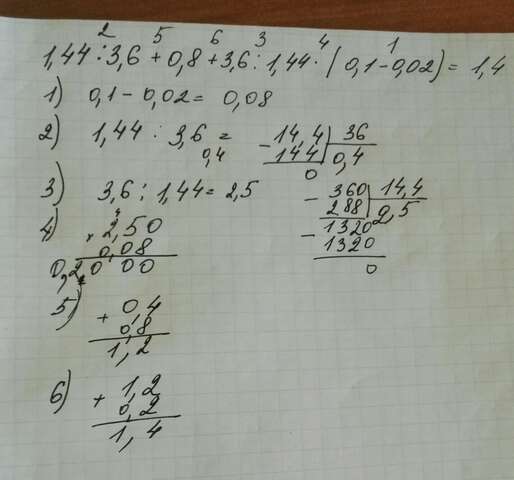 2 5 6 3 4 1
1,44 : 3,6 + 0,8 + 3,6 : 1,44 · ( 0,1 - 0,02) = 1,4
1) 0,1 - 0,02 = 0,08
2) 1,44 : 3,6 = 0,4
- 14,4 | 36
144 | 0,4
0
3) 3,6 : 1,44 = 2,5
- 360 | 14,4
288 | 2,5
- 1320
1320
0
4) 4
× 2,50
0,08
0,2000
5) + 0,4
0,8
1,2
6) + 1,2
0,2
1,4